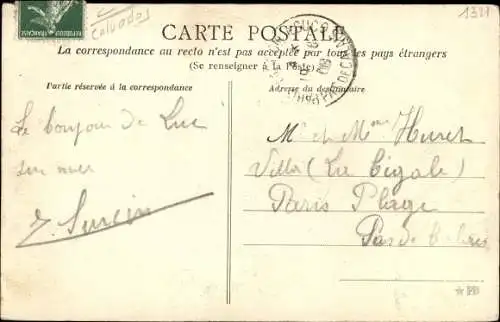 1321
Calvados
CARTE POSTALE
La correspondance au recto n'est pas acceptée par tous les pays étrangers
(Se renseigner à la Poste)
Partie réservée à la correspondance
Le bonjour de Luc
sur mer
Adresse du destinataire
Mr et Mme Huret
Villa (La Cigale)
Paris Plage
Pas de Calais